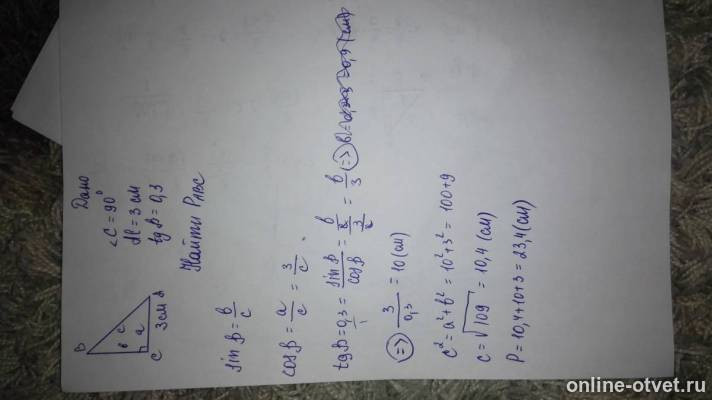 Дано
<C = 90°
AC = 3 см
tg B = 0,3
Найти P ABC
B
c
в
a
C
3см A
sin β = в/c
cos β = a/c = 3/c
tg B = 0,3/1 = sin β/cos β = в/c / 3/c = в/3 (=>)
(=>) 3/0,3 = 10 (см)
c² = a² + b² = 10² + 3² = 100 + 9
c = √109 = 10,4 (см)
P = 10,4 + 10 + 3 = 23,4 (см)
online-otvet.ru